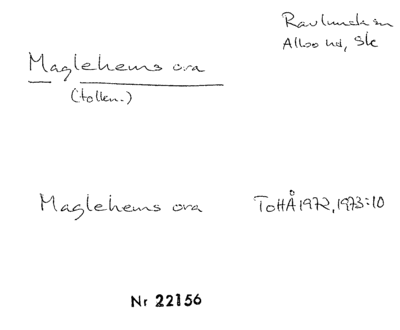 Ravlunda sn
Albo hd, Sk
Maglehems ora
(tolkn.)
Maglehems ora ToHÅ 1972, 1973:10
Nr 22156